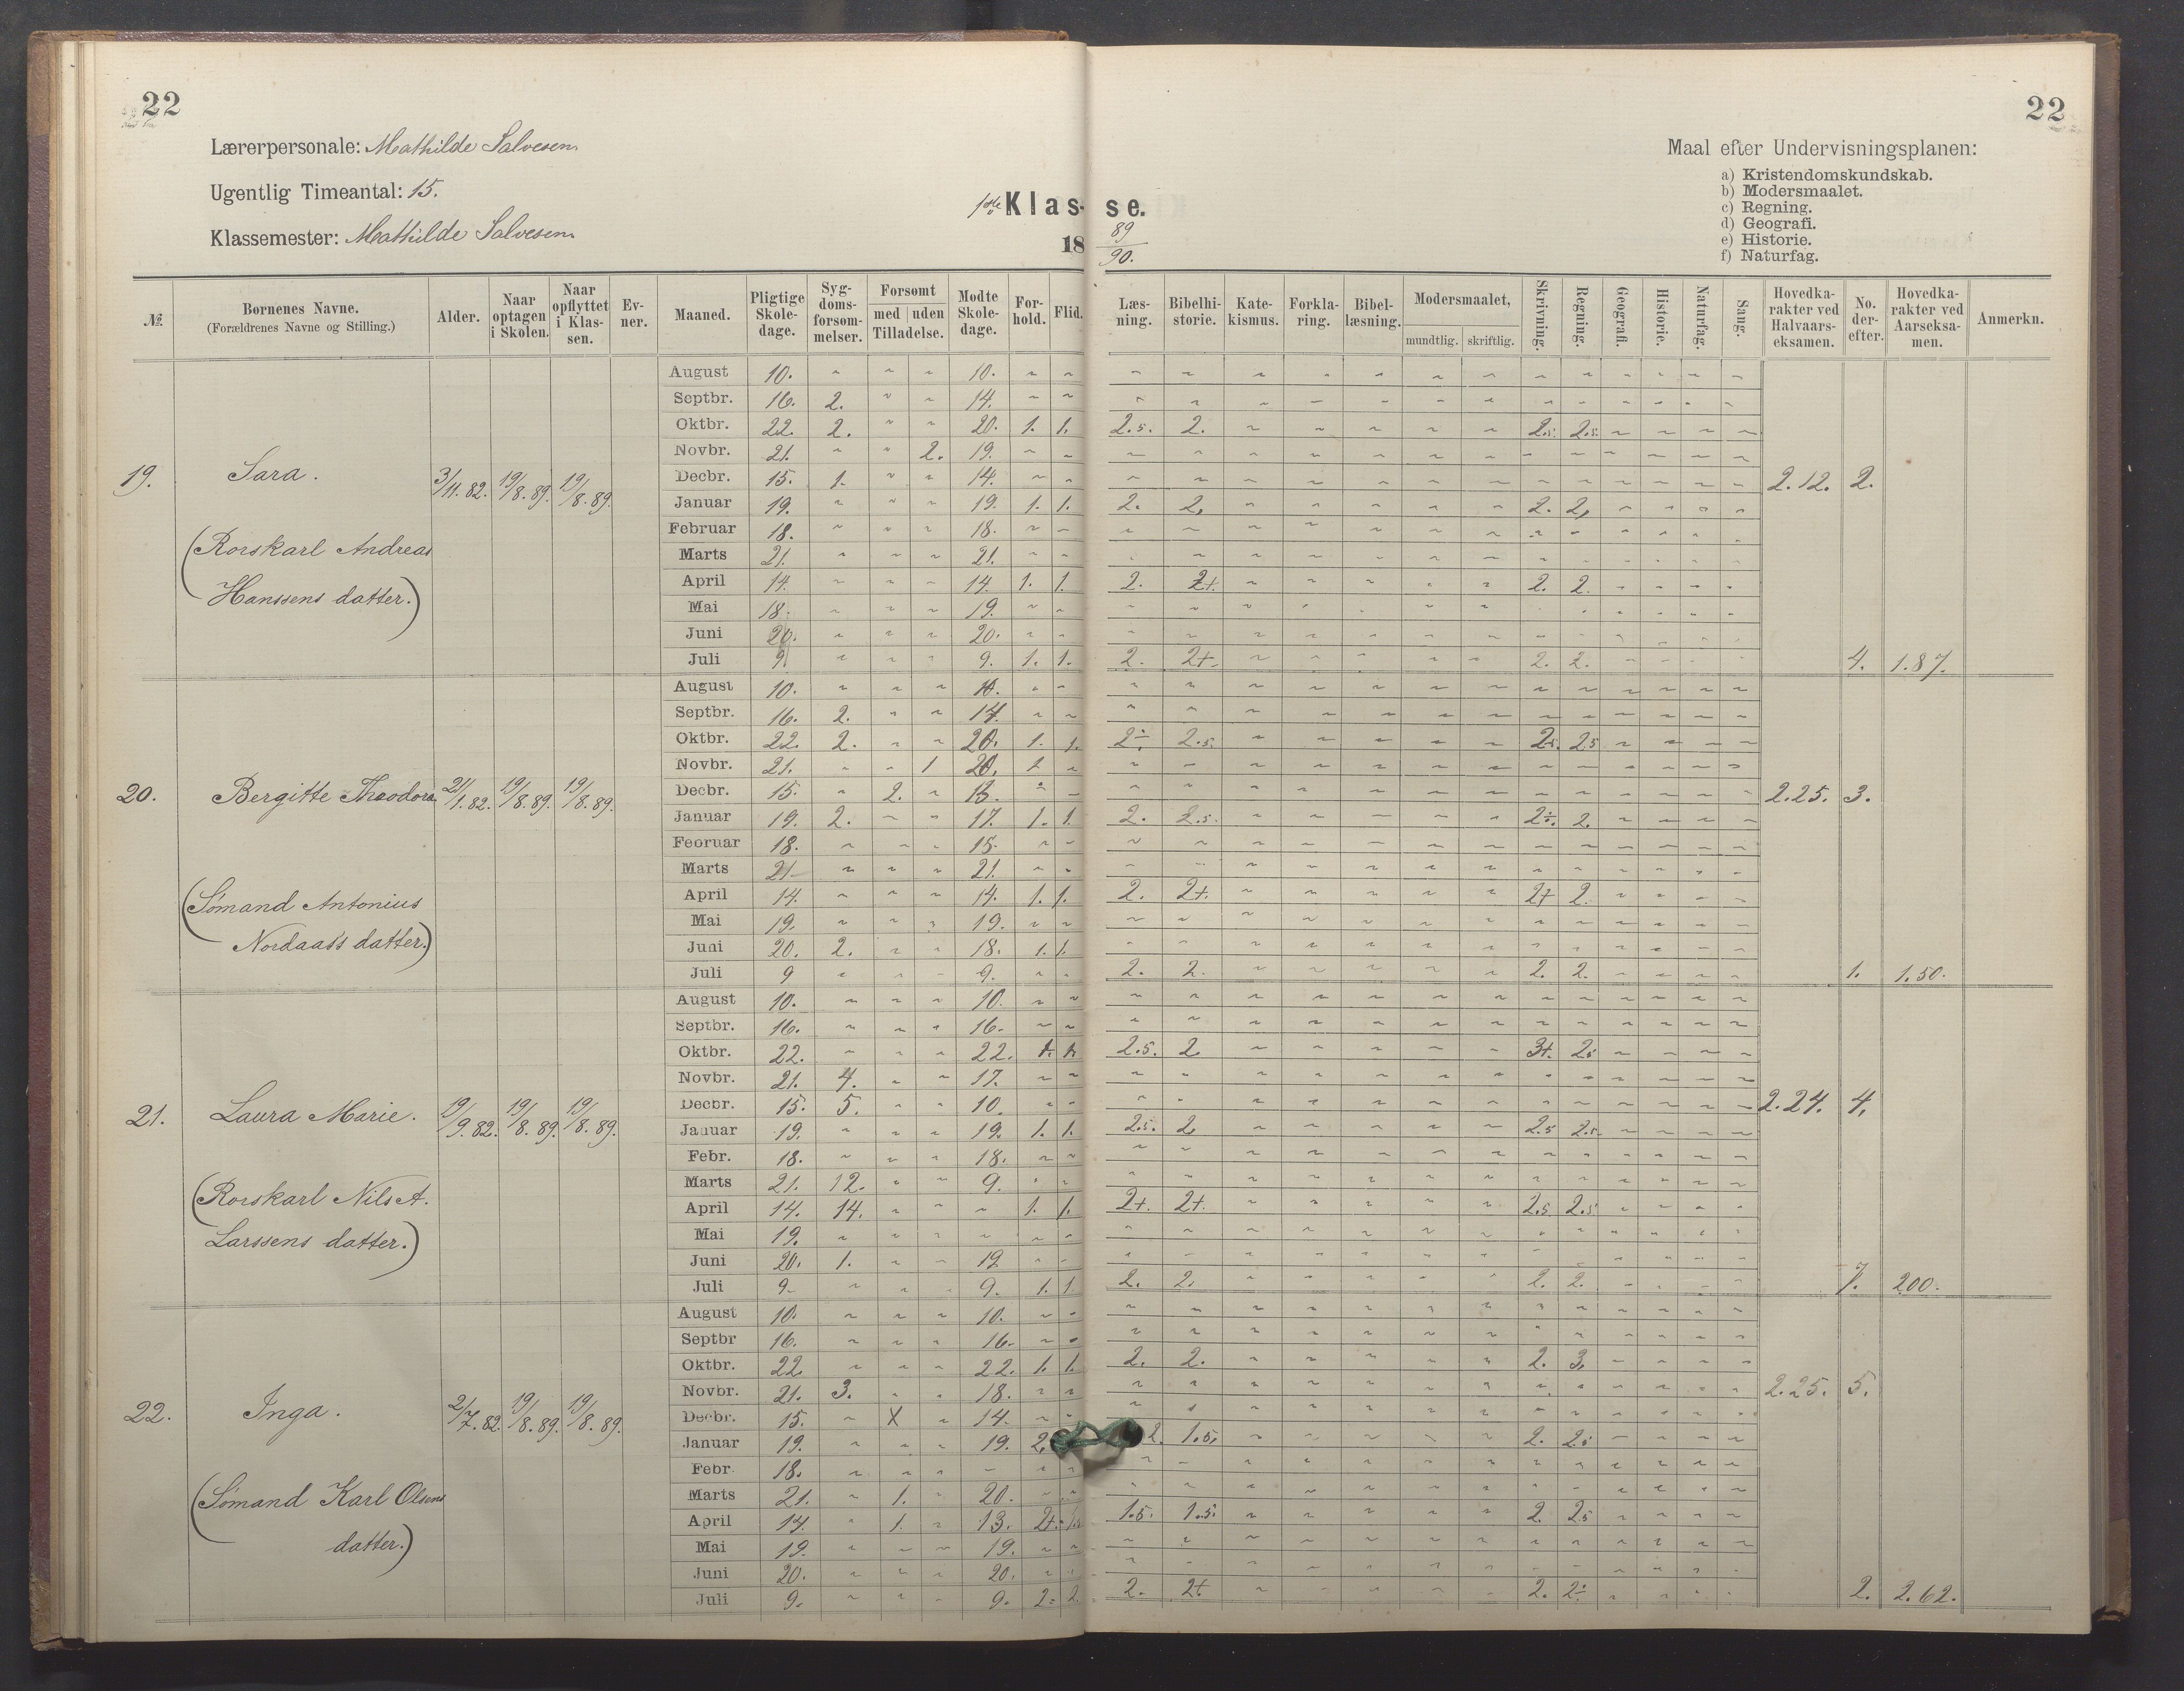 22
22
Lærerpersonale: Mathilde Salvesen.
Ugentlig Timeantal: 15.
Klassemester: Mathilde Salvesen.
1ste Klasse.
18 89/90.
Maal efter Undervisningsplanen:
a) Kristendomskundskab.
b) Modersmaalet.
c) Regning.
d) Geografi.
e) Historie.
f) Naturfag.
№. Børnenes Navne. (Forældrenes Navne og Stilling.) Alder. Naar optagen i Skolen. Naar opflyttet i Klassen. Evner. Maaned. Pligtige Skoledage. Sygdomsforsømmelser. Forsømt med uden Tilladelse. Mødte Skoledage. Forhold. Flid. Læsning. Bibelhistorie. Katekismus. Forklaring. Bibellæsning. Modersmaalet, mundtlig. skriftlig. Skrivning. Regning. Geografi. Historie. Naturfag. Sang. Hovedkarakter ved Halvaarseksamen. No. derefter. Hovedkarakter ved Aarseksamen. Anmerkn.
19. Sara. 3/11.82. 19/8.89. 19/8.89. 2.12. 2.
(Rorskarl Andreas
Hanssens datter.)
August 10. " " " 10. " "
Septbr. 16. 2. " " 14. " "
Oktbr. 22. 2. " " 20. 1. 1. 2.5. 2. 2.5. 2.5.
Novbr. 21. " " 2. 19. " "
Decbr. 15. 1. " " 14. " "
Januar 19. " " " 19. 1. 1. 2. 2. 2. 2.
Februar 18. " " " 18. " "
Marts 21. " " " 21. " "
April 14. " " " 14. 1. 1. 2. 2+. 2. 2.
Mai 18. " " " 19. " "
Juni 20. " " " 20. " "
Juli 9 " " " 9. 1. 1. 2. 2+. 2. 2. 4. 1.87.
20. Bergitte Theodora. 21/1.82. 19/8.89. 19/8.89. 2.25. 3.
(Sømand Antonius
Nordaas's datter.)
August 10. " " " 10. " "
Septbr. 16. 2. " " 14. " "
Oktbr. 22. 2. " " 20. 1. 1. 2÷. 2.5. 2.5. 2.5
Novbr. 21. " " 1 20. 1 "
Decbr. 15. " 2. " 13. " "
Januar 19. 2. " " 17. 1. 1. 2. 2.5. 2÷. 2.
Februar 18. " " " 15. " "
Marts 21 " " " 21. " "
April 14. " " " 14. 1. 1. 2. 2+. 2+ 2.
Mai 19. " " " 19. " "
Juni 20. 2. " " 18. 1. 1.
Juli 9 " " " 9. " " 2. 2. 2. 2. 1. 1.50.
21. Laura Marie. 19/9.82. 19/8.89. 19/8.89. 2.24. 4.
(Rorskarl Nils A.
Larssens datter.)
August 10. " " " 10. " "
Septbr. 16. " " " 16. " "
Oktbr. 22. " " " 22. 1. 1. 2.5. 2. 3+. 2.5
Novbr. 21. 4. " " 17. " "
Decbr. 15. 5. " " 10. " "
Januar 19. " " " 19. 1. 1. 2.5. 2. 2.5 2.5.
Febr. 18. " " " 18. " "
Marts 21. 12. " " 9. " "
April 14. 14. " " " 1. 1. 2+. 2+. 2.5. 2.5
Mai 19. " " " " " "
Juni 20. 1. " " 19 " "
Juli 9. " " " 9. 1. 1. 2. 2. 2. 2. 7. 2.00.
22. Inga. 2/7.82. 19/8.89. 19/8.89. 2.25. 5.
(Sømand Karl Olsens
datter.)
August 10. " " " 10. " "
Septbr 16. " " " 16. " "
Oktbr. 22. " " " 22. 1. 1. 2. 2. 2. 3.
Novbr. 21. 3. " " 18. " "
Decbr. 15. " X " 14. " "
Januar 19. " " " 19. 2. 2. 1.5. 2. 2.5
Febr. 18. " " " " " "
Marts 21. " 1. " 20. " "
April 14. " 1. " 13. 2+. 1.5. 1.5. 2. 2.5
Mai 19. " " " 19. " "
Juni 20. " " " 20. " "
Juli 9. " " " 9. 2. 2. 2. 2+. 2. 2÷ 2. 2.62.